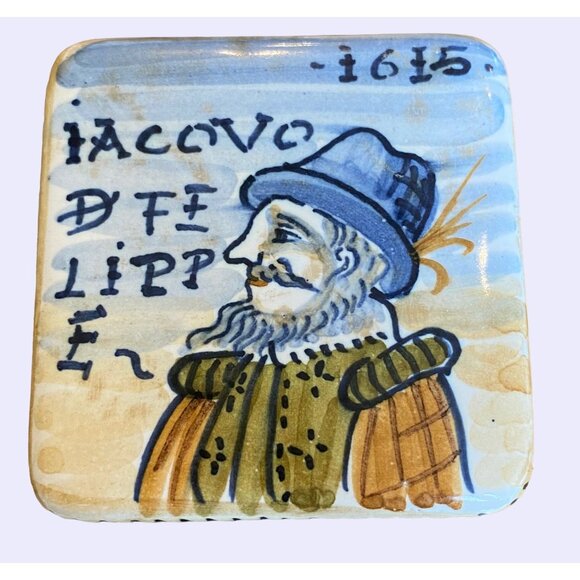 ·1615·
iACOVO
D'FE
LIPP
E~